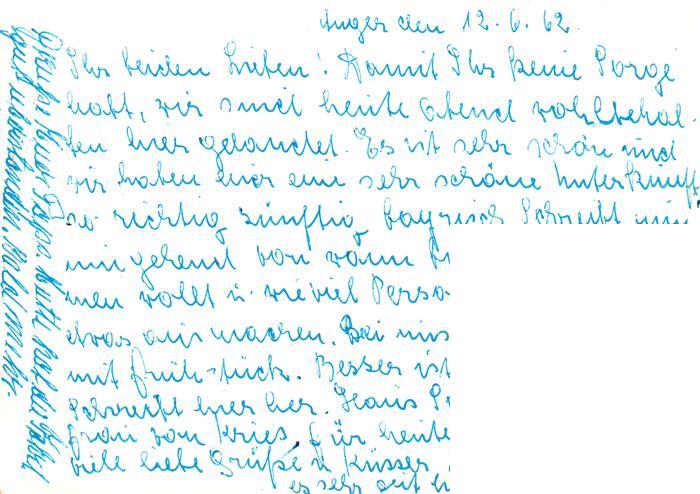 Anger den 12.6.62.
Ihr beiden Lieben! Damit Ihr keine Sorge
habt, wir sind heute Abend wohlbehal-
ten hier gelandet. Es ist sehr schön und
wir haben hier eine sehr schöne Unterkunft
so richtig zünftig bayrisch. Schreibt
umgehend von wann
men wollt u. wieviel Perso
etwas ausmachen. Bei uns
mit Frühstück. Besser ist
Schreibt hier her. Haus
Frau von Kries. Für heute
viele liebe Grüße u Küsse
es sehr seit
gut überstanden.